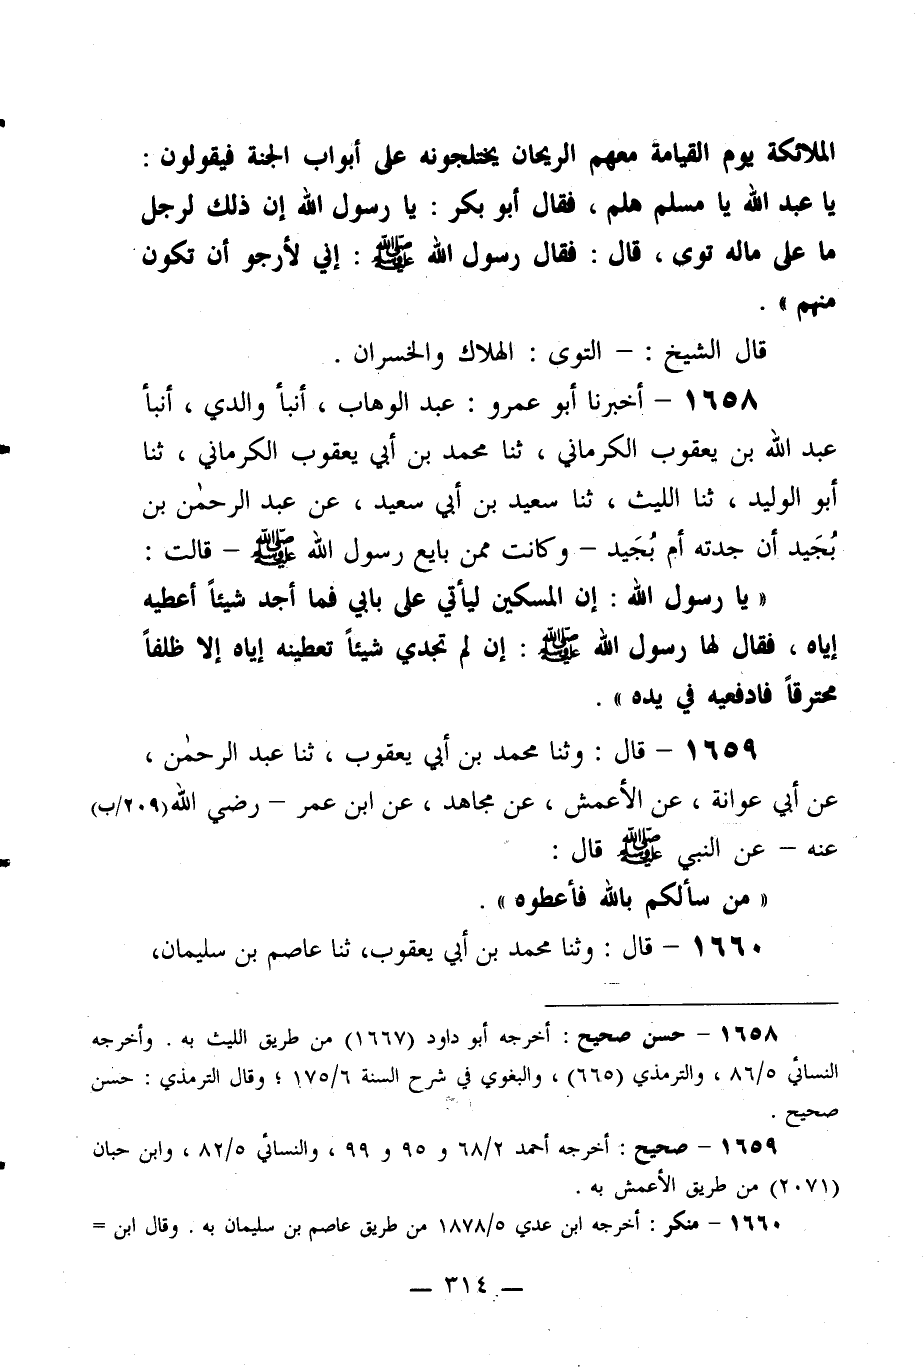 الملائكة يوم القيامة معهم الريحان يختلجونه على أبواب الجنة فيقولون :
يا عبد الله يا مسلم هلم ، فقال أبو بكر : يا رسول الله إن ذلك لرجل
ما على ماله توى ، قال : فقال رسول الله ﷺ : إني لأرجو أن تكون
منهم » .
قال الشيخ : – التوى : الهلاك والخسران .
١٦٥٨ – أخبرنا أبو عمرو : عبد الوهاب ، أنبأ والدي ، أنبأ
عبد الله بن يعقوب الكرماني ، ثنا محمد بن أبي يعقوب الكرماني ، ثنا
أبو الوليد ، ثنا الليث ، ثنا سعيد بن أبي سعيد ، عن عبد الرحمٰن بن
بُجَيد أن جدته أم بُجَيد – وكانت ممن بايع رسول الله ﷺ – قالت :
« يا رسول الله : إن المسكين ليأتي على بابي فما أجد شيئاً أعطيه
إياه ، فقال لها رسول الله ﷺ : إن لم تجدي شيئاً تعطينه إياه إلا ظلفاً
محترقاً فادفعيه في يده » .
١٦٥٩ – قال : وثنا محمد بن أبي يعقوب ، ثنا عبد الرحمٰن ،
عن أبي عوانة ، عن الأعمش ، عن مجاهد ، عن ابن عمر – رضي الله (٢٠٩/ب)
عنه – عن النبي ﷺ قال :
« من سألكم بالله فأعطوه » .
١٦٦٠ – قال : وثنا محمد بن أبي يعقوب، ثنا عاصم بن سليمان،
١٦٥٨ – حسن صحيح : أخرجه أبو داود (١٦٦٧) من طريق الليث به . وأخرجه
النسائي ٨٦/٥ ، والترمذي (٦٦٥) ، والبغوي في شرح السنة ١٧٥/٦ ؛ وقال الترمذي : حسن
صحيح .
١٦٥٩ – صحيح : أخرجه أحمد ٦٨/٢ و ٩٥ و ٩٩ ، والنسائي ٨٢/٥ ، وابن حبان
(٢٠٧١) من طريق الأعمش به .
١٦٦٠ – منكر : أخرجه ابن عدي ١٨٧٨/٥ من طريق عاصم بن سليمان به . وقال ابن =
— ٣١٤ —